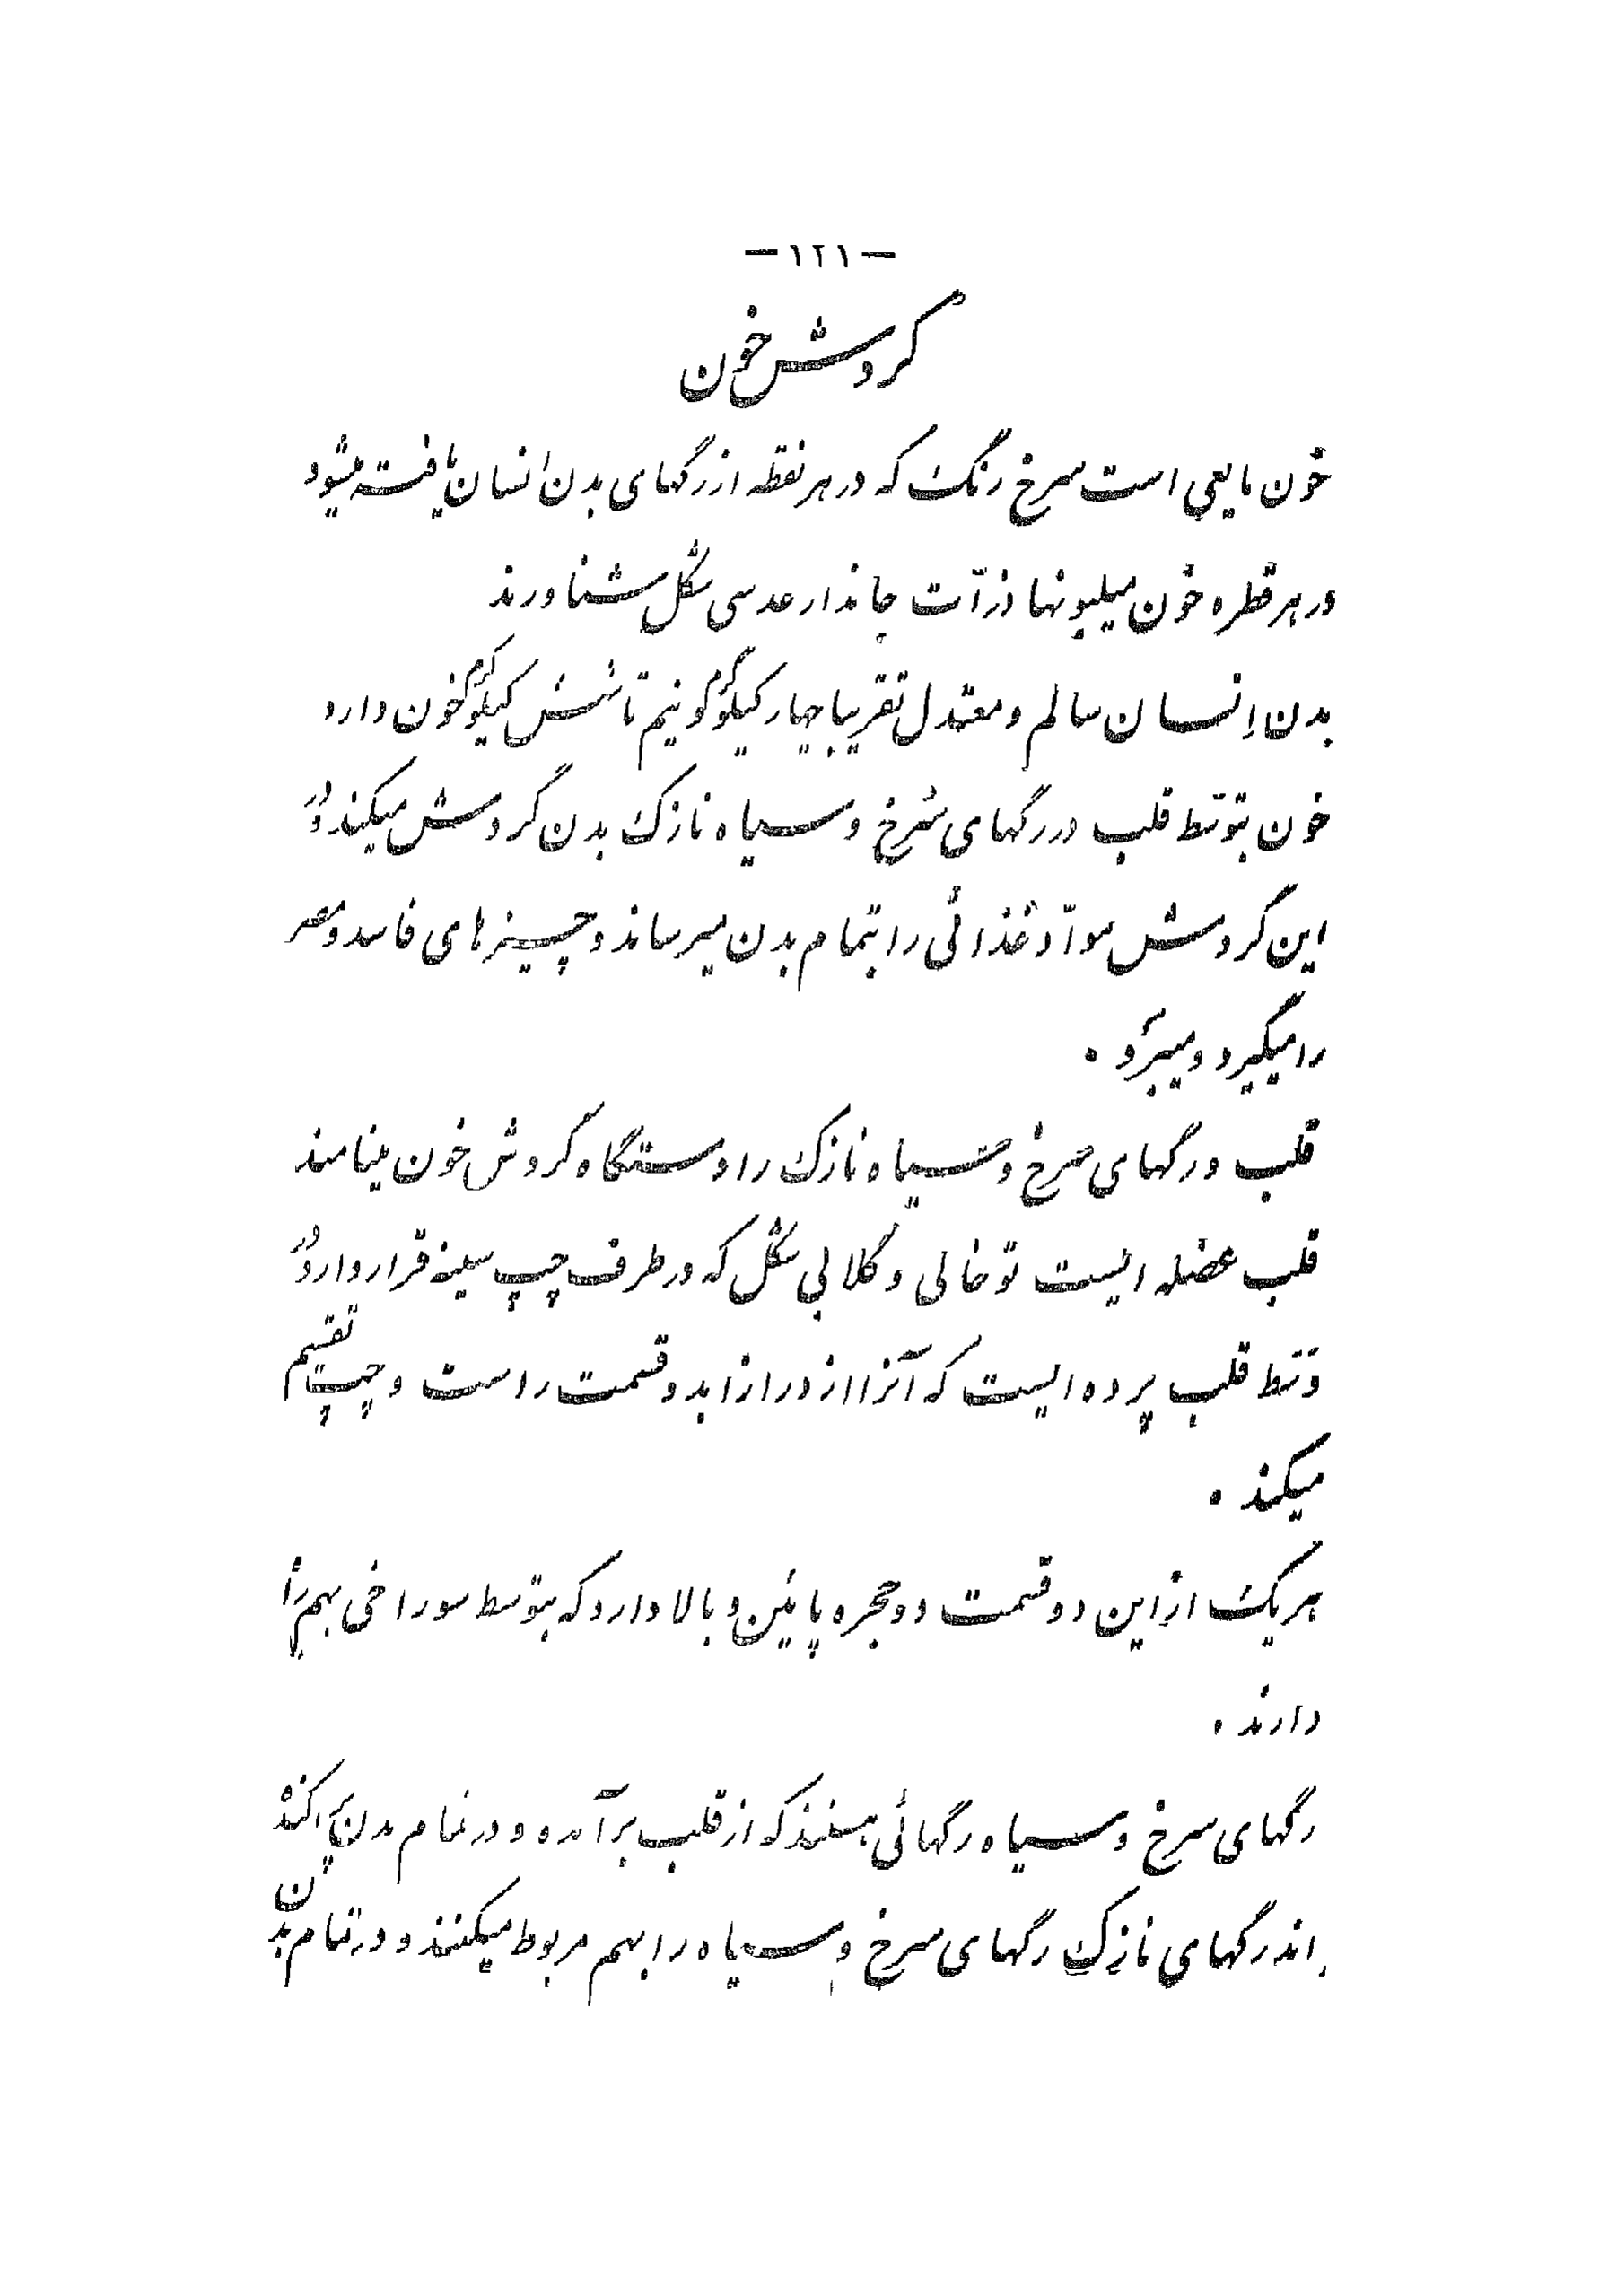 — ۱۲۱ —
گردش خون
خون مایعی است سرخ رنگ که در هر نقطه از رگهای بدن انسان یافت میشود
در هر قطره خون میلیونها ذرّات جاندار عدسی شکل شناورند
بدن اِنسان سالم و معتدل تقریبا چهار کیلوگرم و نیم تا شش کیلوگرم خون دارد
خون بتوسّط قلب در رگهای سُرخ و سیاه نازک بدن گردش میکند و در
این گردش موادّ غذائی را بتمام بدن میرساند و چیزهای فاسد و مضر
را میگیرد و میبرَد .
قلب و رگهای سرخ و سیاه نازک را دستگاه گردش خون مینامند
قلب عضله ایست تو خالی و گلابی شکل که در طرف چپ سینه قرار دارد و در
وَسَط قلب پرده ایست که آنرا از درازا بدو قسمت راست و چپ تقسیم
میکند .
هر یک از این دو قسمت دو حجره پائین و بالا دارد که بتوسط سوراخی بهم راه
دارند .
رگهای سرخ و سیاه رگهائی هستند که از قلب بر آمده و در تمام بدن پراکنده
اند رگهای نازک رگهای سرخ و سیاه را بهم مربوط میکنند و در تمام بدن